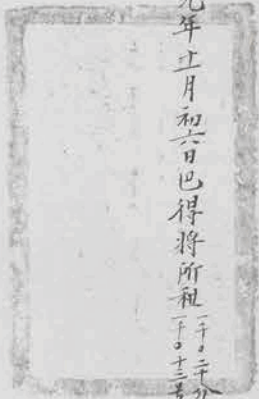 元年十一月初六日巴得將所租
一千〇二十
一千〇十三号